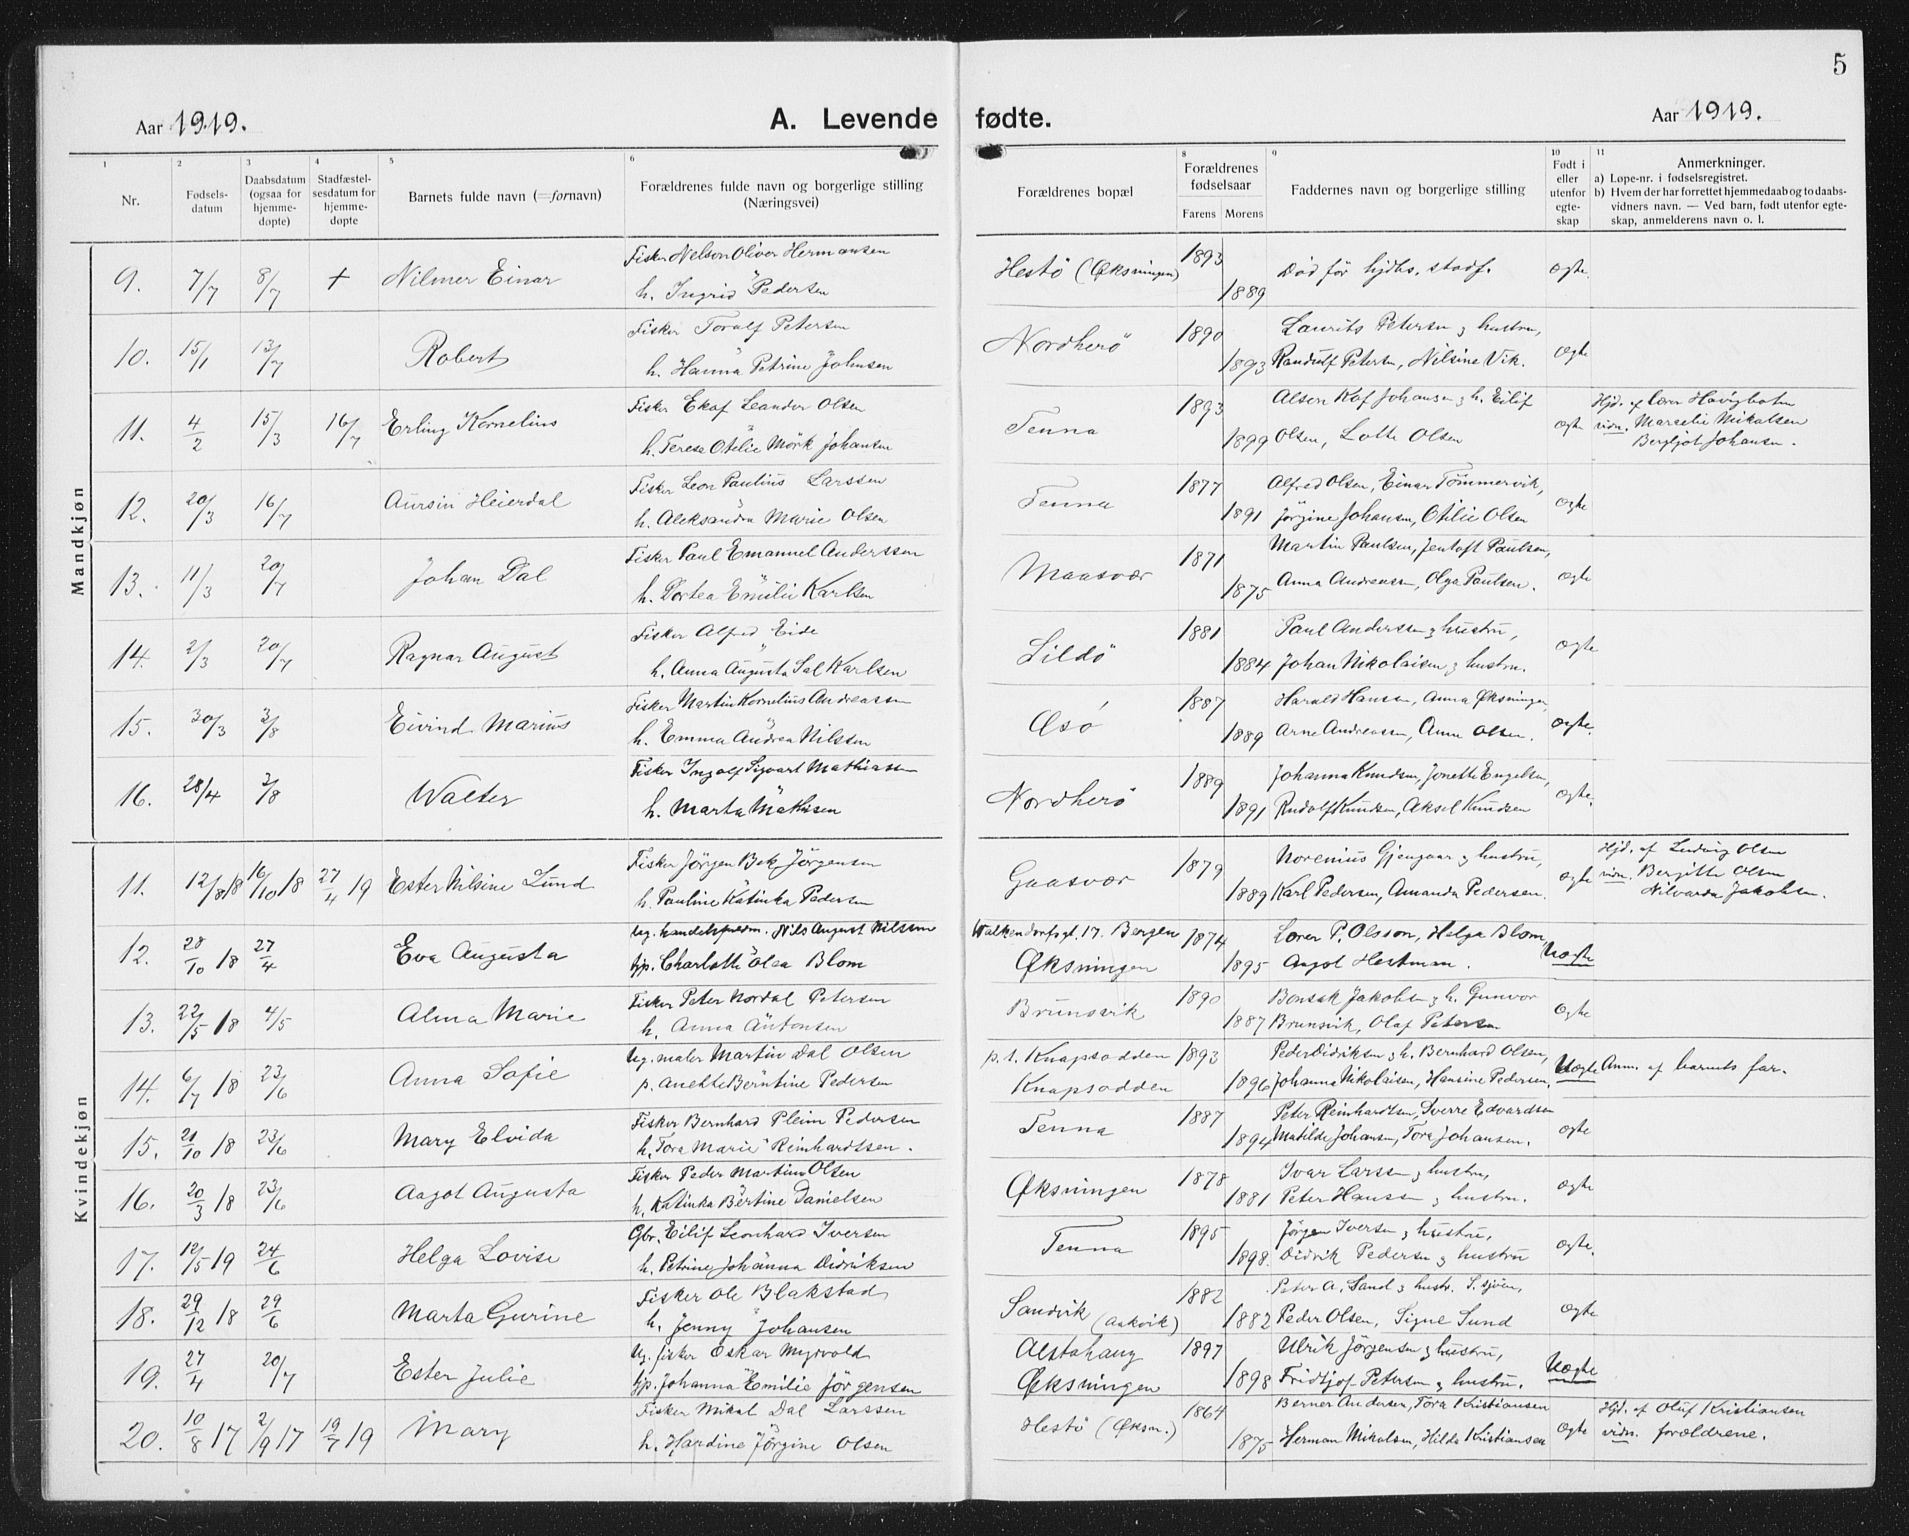 5
Aar 1919.
A. Levende fødte.
Aar 1919.
1 2 3 4 5 6 8 9 10 11
Nr.
Fødsels-
datum
Daabsdatum
(ogsaa for
hjemme-
døpte)
Stadfæstel-
sesdatum for
hjemme-
døpte
Barnets fulde navn (=fornavn)
Forældrenes fulde navn og borgerlige stilling
(Næringsvei)
Forældrenes bopæl
Forældrenes
fødselsaar
Farens Morens
Faddernes navn og borgerlige stilling
Født i
eller
utenfor
egte-
skap
Anmerkninger.
a) Løpe-nr. i fødselsregistret.
b) Hvem der har forrettet hjemmedaab og to daabs-
vidners navn. — Ved barn, født utenfor egte-
skap, anmelderens navn o. l.
Mandkjøn
Fisker Nelson Oliver Hermansen 1893
9. 7/7 8/7 + Nilmer Einar Hestö (Øksningen) Död för hjdbs. stadf. ægte.
h. Ingrid Pedersen 1889
Fisker Toralf Petersen 1890 Laurits Petersen & hustru,
10. 15/1 13/7 Robert Nordherö ægte
h. Hanna Petrine Johnsen 1893 Randulf Petersen, Nilsine Vik.
Fisker Ekaf Leander Olsen 1893 Alsen Olaf Johansen & h. Eilif Hjd. af Lærer Havigbotn
11. 4/2 15/3 16/7 Erling Kornelius Tenna ægte vidn. Marselie Mikalsen
h. Teresa Otelie Mörk Johansen 1899 Olsen, Lotte Olsen Bergljot Johansen.
Fisker Leon Paulius Larssen 1877 Alfred Olsen, Einar Tömmervik,
12. 20/3 16/7 Aursin Heierdal Tenna ægte
h. Aleksandra Marie Olsen 1891 Jörgine Johansen, Otilie Olsen
Fisker Paul Emanuel Anderssen 1871 Martin Paulsen, Jentoft Paulsen,
13. 11/3 20/7 Johan Dal Maasvær ægte
h. Dortea Emilie Karlsen 1875 Anna Andreassen, Olga Paulsen.
Fisker Alfred Eide 1881 Paul Anderssen & hustru,
14. 2/3 20/7 Ragnar August Lildö ægte
h. Anna Augusta Sal Karlsen 1884 Johan Nikolaisen & hustru.
Fisker Martin Kornelius Andreassen 1887 Harald Hansen, Anna Øksningen,
15. 30/3 3/8 Eivind Marius Æsö ægte.
h. Emma Andrea Nilssen 1889 Arne Andreassen, Anna Olsen.
Fisker Ingolf Sigvart Mathiassen 1889 Johanna Knudsen, Jonette Engelsen,
16. 28/4 3/8 Walter Nordherö ægte.
h. Marta Mathisen 1891 Rudolf Knudsen, Aksel Knudsen
Kvindekjøn
Fisker Jörgen Bek Jörgensen 1879 Norenius Gjengaar & hustru, Hjd. af Ludvig Olsen
11. 12/8 18 16/10 18 27/4 19 Ester Nilsine Lund Gaasvær ægte vidn. Bergitte Olsen
h. Pauline Katinka Pedersen 1889 Karl Pedersen, Amanda Pedersen. Nilvarda Jakobsen.
Ug. handelsfuldm. Nils August Nilssen Walkendorfsgt. 17. Bergen 1874 Lærer P. Olsson, Helga Blom,
12. 28/10 18 27/4 Eva Augusta Uægte
tjp. Charlotte Olea Blom Øksningen 1895 Aagot Hestman.
Fisker Peter Nordal Petersen 1890 Bonsak Jakobsen & h. Gunvor
13. 22/5 18 4/5 Alma Marie Brunsvik ægte
h. Anna Antonsen 1887 Brunsvik, Olaf Petersen
Ug. maler Martin Dal Olsen p.t. Knapsodden 1893 Peder Didriksen & h. Bernhard Olsen,
14. 6/7 18 23/6 Anna Sofie Uægte Anm. af barnets far.
p. Anette Berntine Pedersen Knapsodden 1896 Johanna Nikolaisen, Hansine Pedersen.
Fisker Bernhard Pleim Pedersen 1887 Peter Reinhardtsen, Sverre Edvardsen
15. 21/10 18 23/6 Mary Elvida Tenna ægte
h. Tora Marie Reinhardtsen. 1894 Matilde Johansen, Tora Johansen.
Fisker Peder Martinus Olsen 1878 Ivar Larssen & hustru,
16. 20/3 18 23/6 Aagot Augusta Øksningen ægte
h. Katinka Bertine Danielsen 1881 Peter Hanssen & hustru.
Gbr. Eilif Leonhard Iversen 1895 Jörgen Iversen & hustru,
17. 12/5 19 24/6 Helga Lovise Tenna ægte.
h. Petrine Johanna Didriksen 1898. Didrik Pedersen & hustru
Fisker Ole Blakstad 1882 Peter A. Sand & hustr. S. sjöen,
18. 29/12 18 29/6 Marta Gurine Sandvik (Aakvik) ægte
h. Jenny Johansen 1882 Peder Olsen, Signe Sund
Ug. fisker Oskar Myrvold Alstahaug 1897 Ulrik Jörgensen & hustru,
19. 27/4 20/7 Ester Julie Uægte
tjp. Johanna Emilie Jörgensen Øksningen 1898 Fridtjof Petersen & hustru.
Fisker Mikal Dal Larssen 1864 Berner Andersen, Tora Kristiansen Hjd. af Oluf Kristiansen
20. 10/8 17 2/9 17 19/7 19 Mary Hestö (Øksn.) ægte vidn. forældrene.
h. Hardine Jörgine Olsen 1875 Herman Mikalsen, Hilda Kristiansen